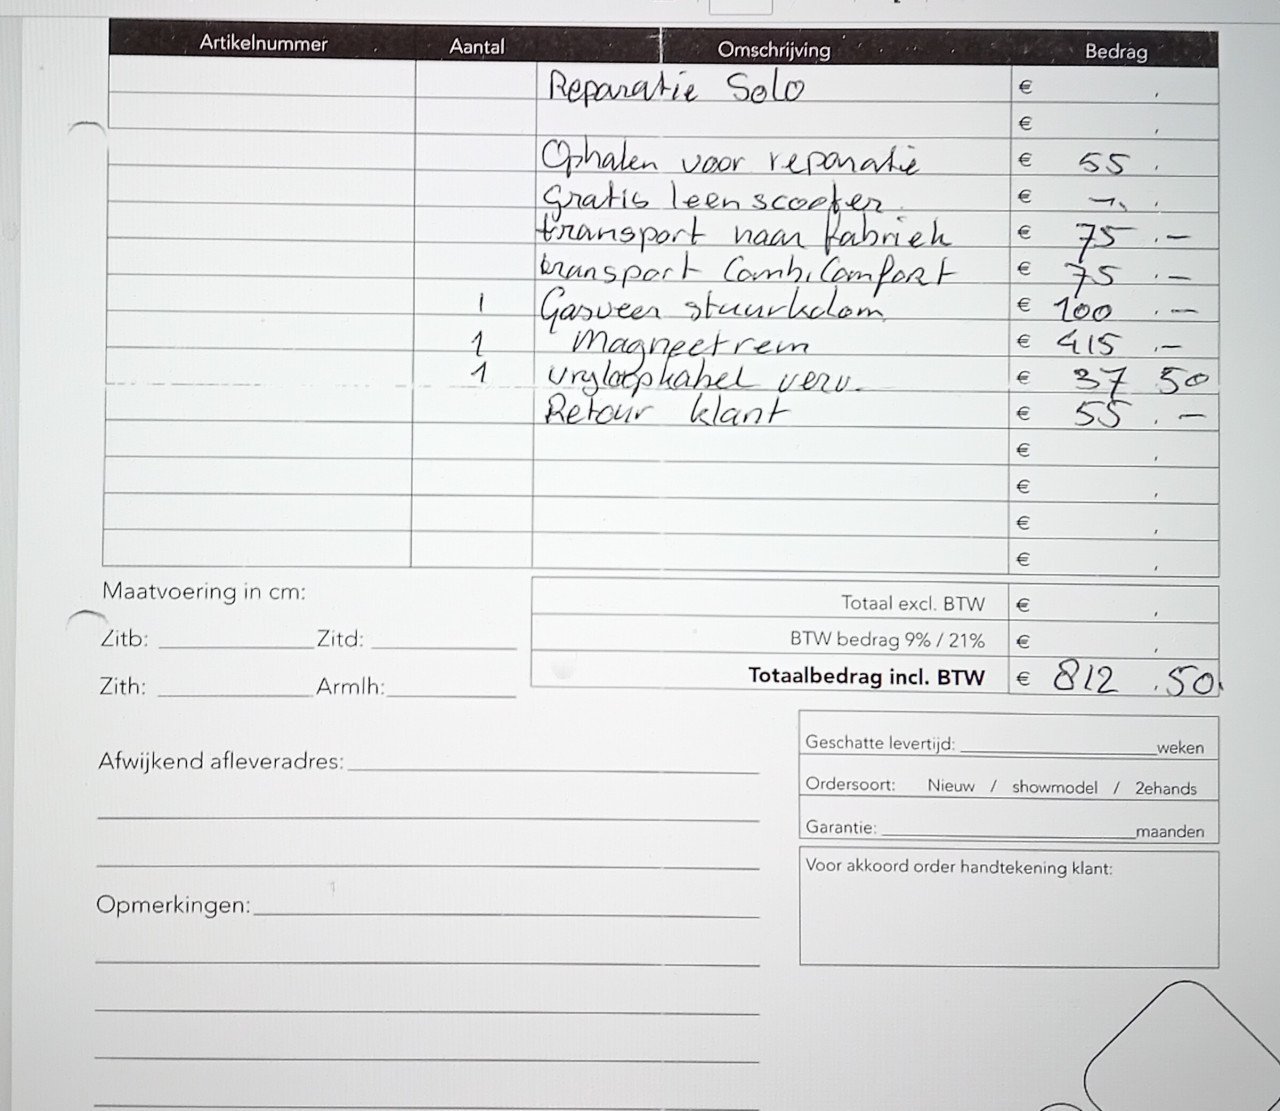 Artikelnummer Aantal Omschrijving Bedrag
Reparatie Solo € ,
€ ,
Ophalen voor reparatie € 55 ,
Gratis leenscooter € -, ,
transport naar fabriek € 75 , -
transport CombiComfort € 75 , -
1 Gasveer stuurkolom € 100 , -
1 Magneetrem € 415 , -
1 vryloopkabel verv. € 37 50
Retour klant € 55 , -
€ ,
€ ,
€ ,
€ ,
Maatvoering in cm:
Totaal excl. BTW € ,
Zitb: Zitd:
BTW bedrag 9% / 21% € ,
Zith: Armlh:
Totaalbedrag incl. BTW € 812 ,50
Geschatte levertijd: weken
Afwijkend afleveradres:
Ordersoort: Nieuw / showmodel / 2ehands
Garantie: maanden
Voor akkoord order handtekening klant:
Opmerkingen: